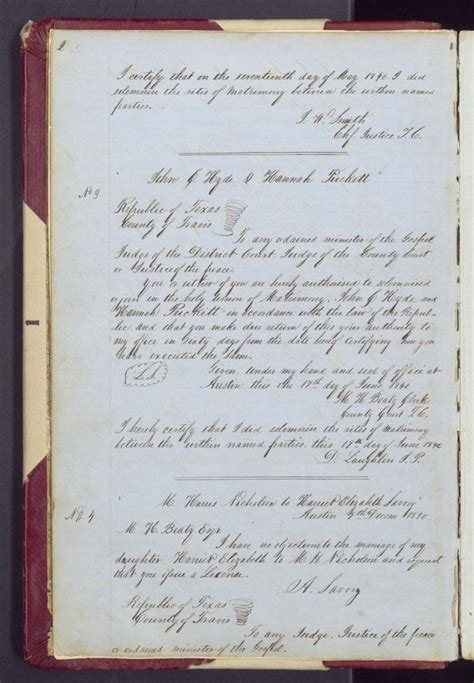 2
I certify that on the seventeenth day of May 1840 I did
solemnise the rites of Matrimony between the within named
parties.
J. W. Smith
Chf. Justice T. C.
John G Hyde & Hannah Puckett
No 3
Republic of Texas
County of Travis
To any ordained minister of the Gospel
Judge of the District Court Judge of the County Court
or Justice of the peace
You or either of you are hereby authorised to solemnised
or join in the holy union of Matrimony, John G Hyde and
Hannah Puckett in accordance with the law of the Repub-
lic and that you make due return of this your authority to
my office in Sixty days from the date being certifying how you
have executed the same.
Given under my hand and seal of office at
Austin this the 17th day of June 1840
M. H. Beaty Clerk
County Court T.C.
I hereby certify that I did solemnise the rites of matrimony
between the within named parties this 19th day of June 1840
D. Laughlin J. P.
M. Harris Nicholson to Harriet Elizabeth Savory
Austin 7th Decem 1840
No 4
M. H. Beaty Esqr.
I have no objection to the marriage of my
daughter Harriet Elizabeth to M. H. Nicholson and request
that you issue a License.
A. Savory
Republic of Texas
County of Travis
To any Judge, Justice of the peace
or ordained minister of the Gospel.